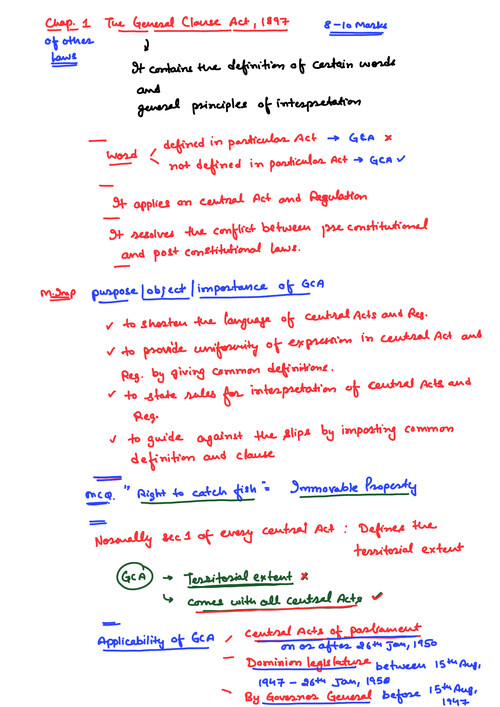 Chap. 1 The General Clause Act, 1897 8-10 Marks
of other
laws
It contains the definition of certain words
and
general principles of interpretation
Word defined in particular Act → GCA ×
not defined in particular Act → GCA ✓
It applies on central Act and Regulation
It resolves the conflict between pre constitutional
and post constitutional laws.
M.Imp purpose/object/importance of GCA
✓ to shorten the language of central Acts and Reg.
✓ to provide uniformity of expression in central Act and
Reg. by giving common definitions.
✓ to state rules for interpretation of central Acts and
Reg.
✓ to guide against the slips by importing common
definition and clause
MCQ. "Right to catch fish" = Immovable Property
Normally sec 1 of every central Act : Defines the
territorial extent
GCA → Territorial extent ×
↳ comes with all central Acts ✓
Applicability of GCA Central Acts of parliament
on or after 26th Jan, 1950
Dominion legislature between 15th Aug,
1947 - 26th Jan, 1950
By Governor General before 15th Aug,
1947